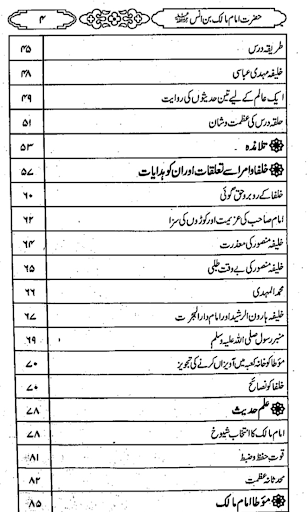 حضرت امام مالک بن انس ۴
طریقہ درس ۴۵
خلیفہ مہدی عباسی ۴۸
ایک عالم کے لیے تین حدیثوں کی روایت ۴۹
حلقہ درس کی عظمت وشان ۵۱
تلامذہ ۵۳
خلفا وامرا سے تعلقات اور ان کو ہدایات ۵۷
خلفا کے روبرو حق گوئی ۶۰
امام صاحب کی عزیمت اور کوڑوں کی سزا ۶۲
خلیفہ منصور کی معذرت ۶۴
خلیفہ منصور کی بے وقت طلبی ۶۵
محمد المہدی ۶۶
خلیفہ ہارون الرشید اور امام دارالہجرت ۶۷
منبر رسول صلی اللہ علیہ وسلم ۶۹
مؤطا کو خانہ کعبہ میں آویزاں کرنے کی تجویز ۷۰
خلفا کو نصائح ۷۰
علم حدیث ۷۸
امام مالک کا انتخاب شیوخ ۷۸
قوت حفظ وضبط ۸۱
محدثانہ عظمت ۸۲
مؤطا امام مالک ۸۵